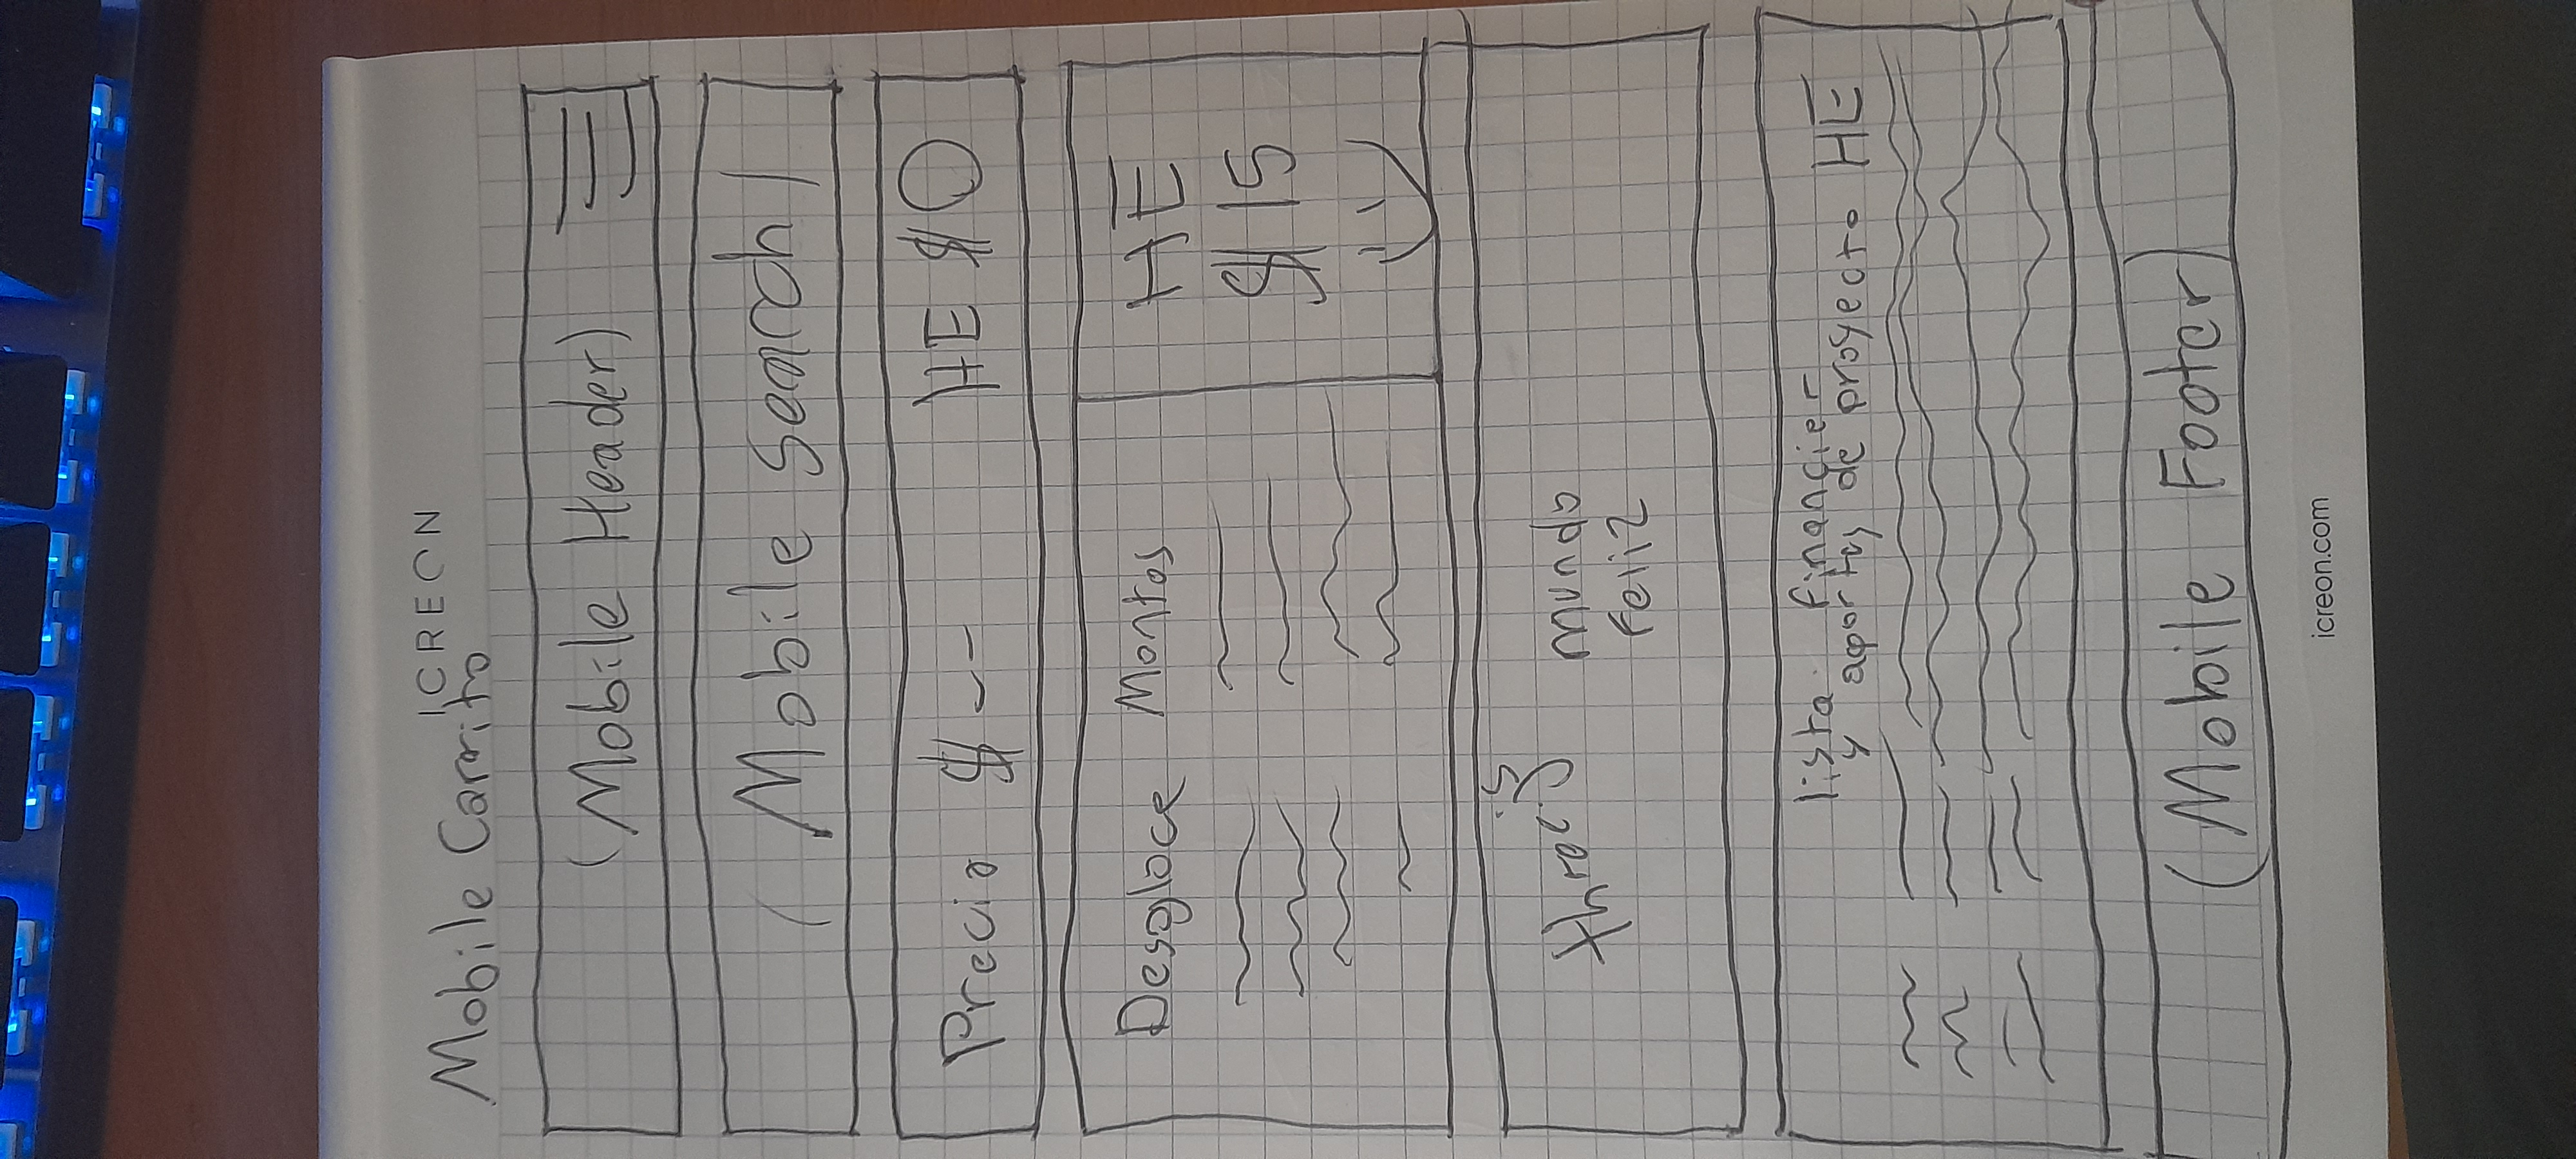 ICREON
Mobile Carrito
(Mobile Header)
(Mobile Search)
Precio $-- HE $0
Desgloce Montos HE
$15
three.js mundo
feliz
lista financier
y aportes de proyecto HE
(Mobile Footer)
icreon.com